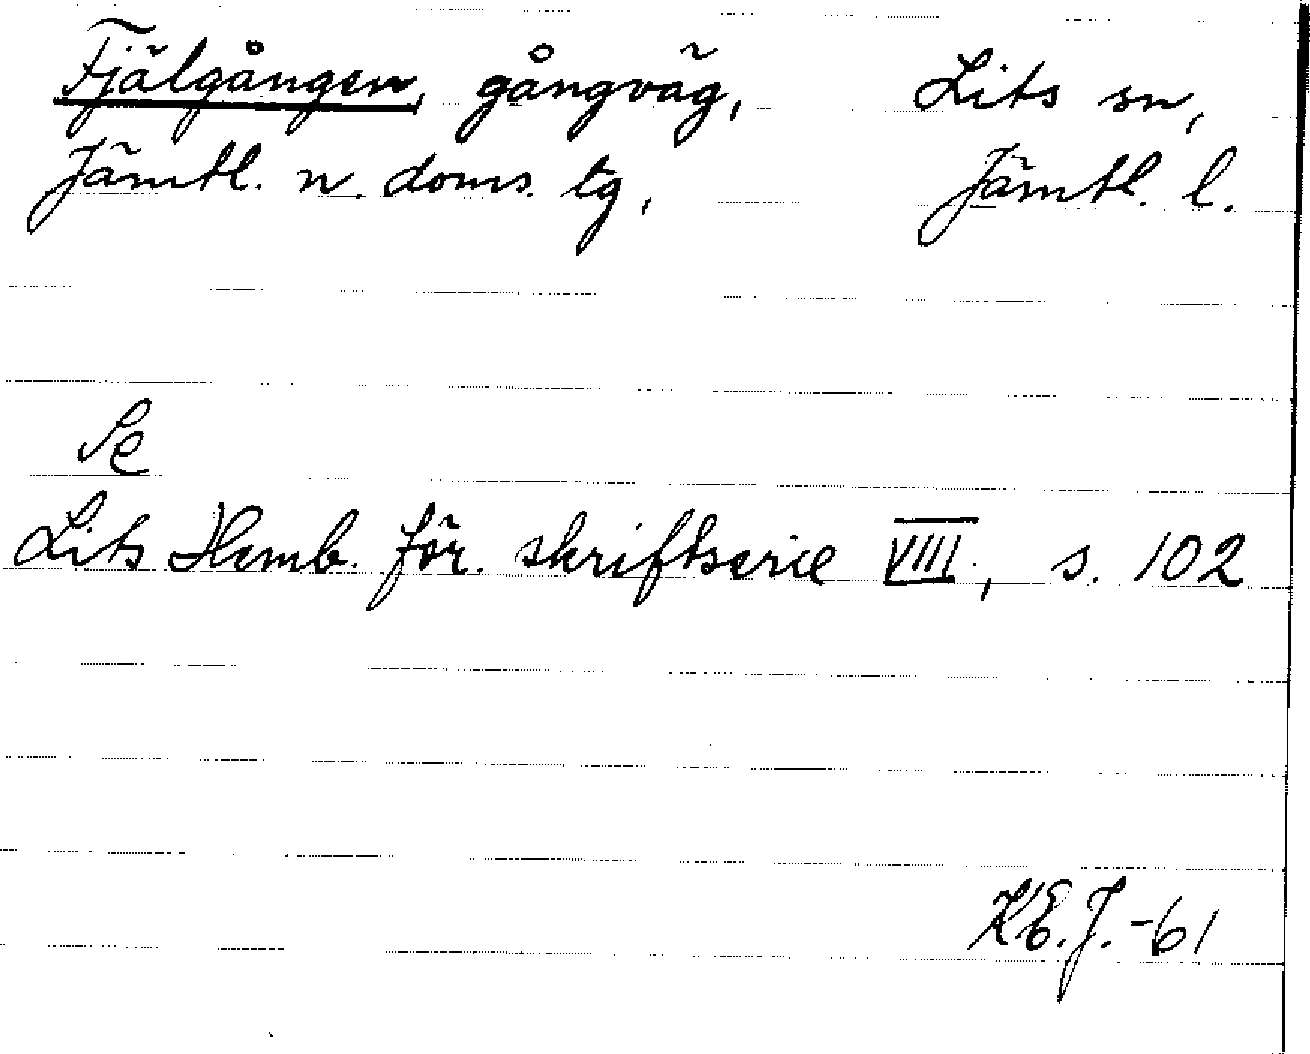 Fjälgången, gångväg, Lits sn,
Jämtl. n. doms. tg, Jämtl. l.
Se
Lits Hemb. för. skriftserie VIII, s. 102
K.E.J. -61